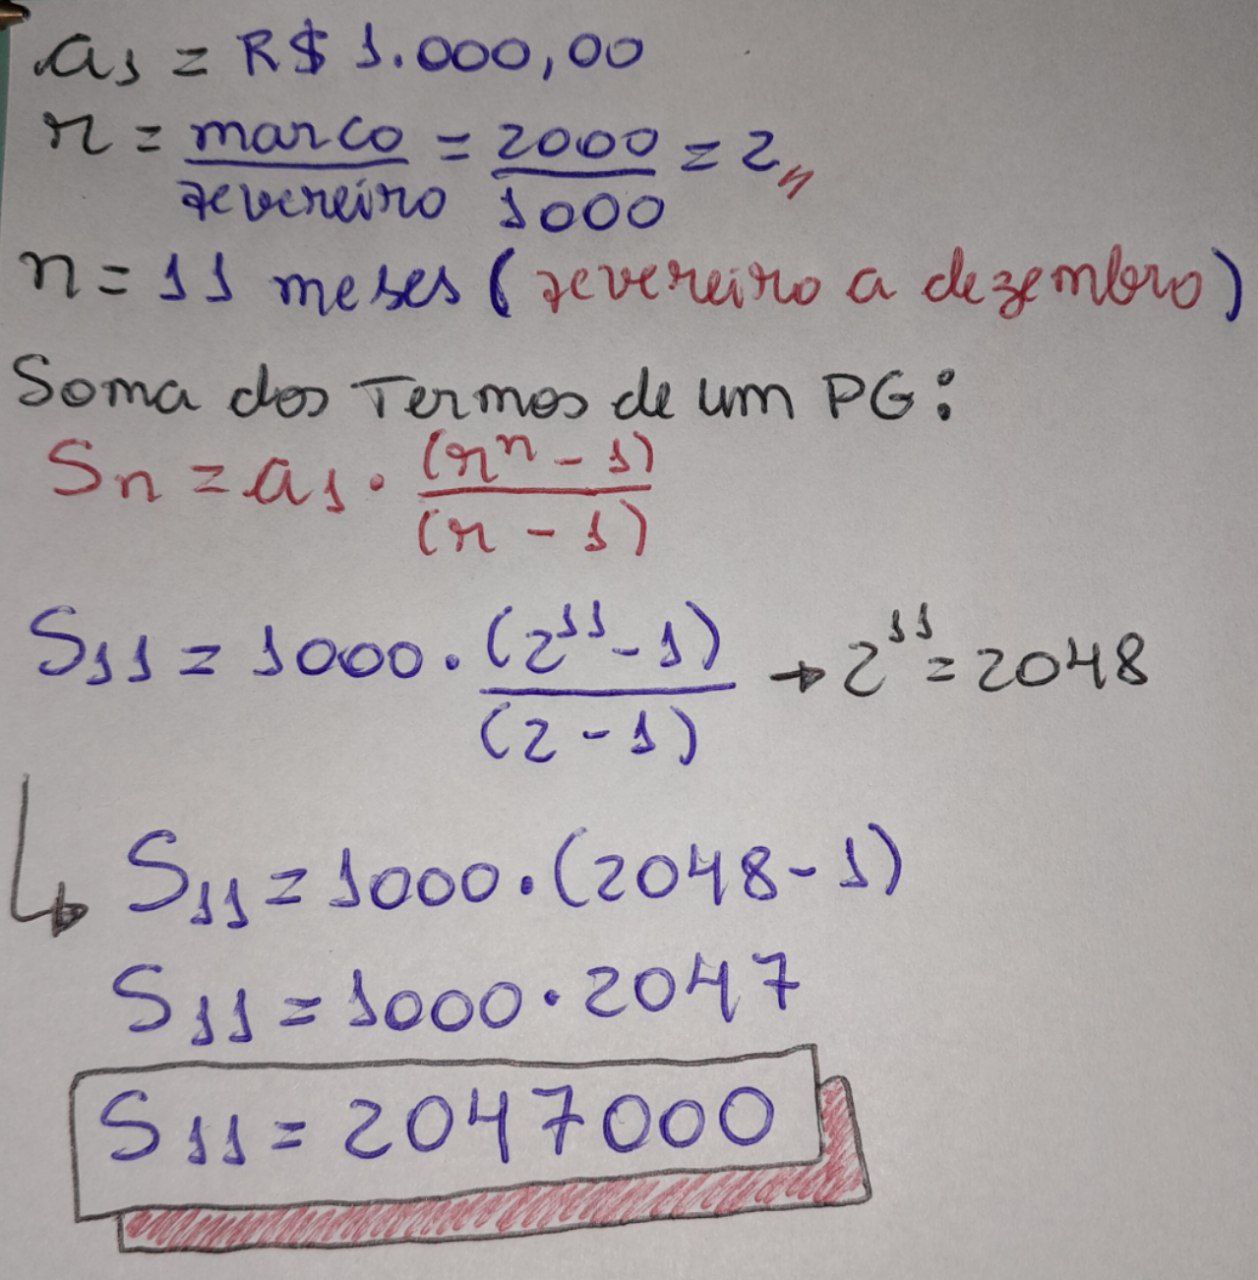 a1 = R$ 1.000,00
r = marco/fevereiro = 2000/1000 = 2,,
n = 11 meses (fevereiro a dezembro)
Soma dos Termos de um PG:
Sn = a1 . (r^n - 1)/(r - 1)
S11 = 1000 . (2^11 - 1)/(2 - 1) → 2^11 = 2048
↳ S11 = 1000 . (2048 - 1)
S11 = 1000 . 2047
S11 = 2047000